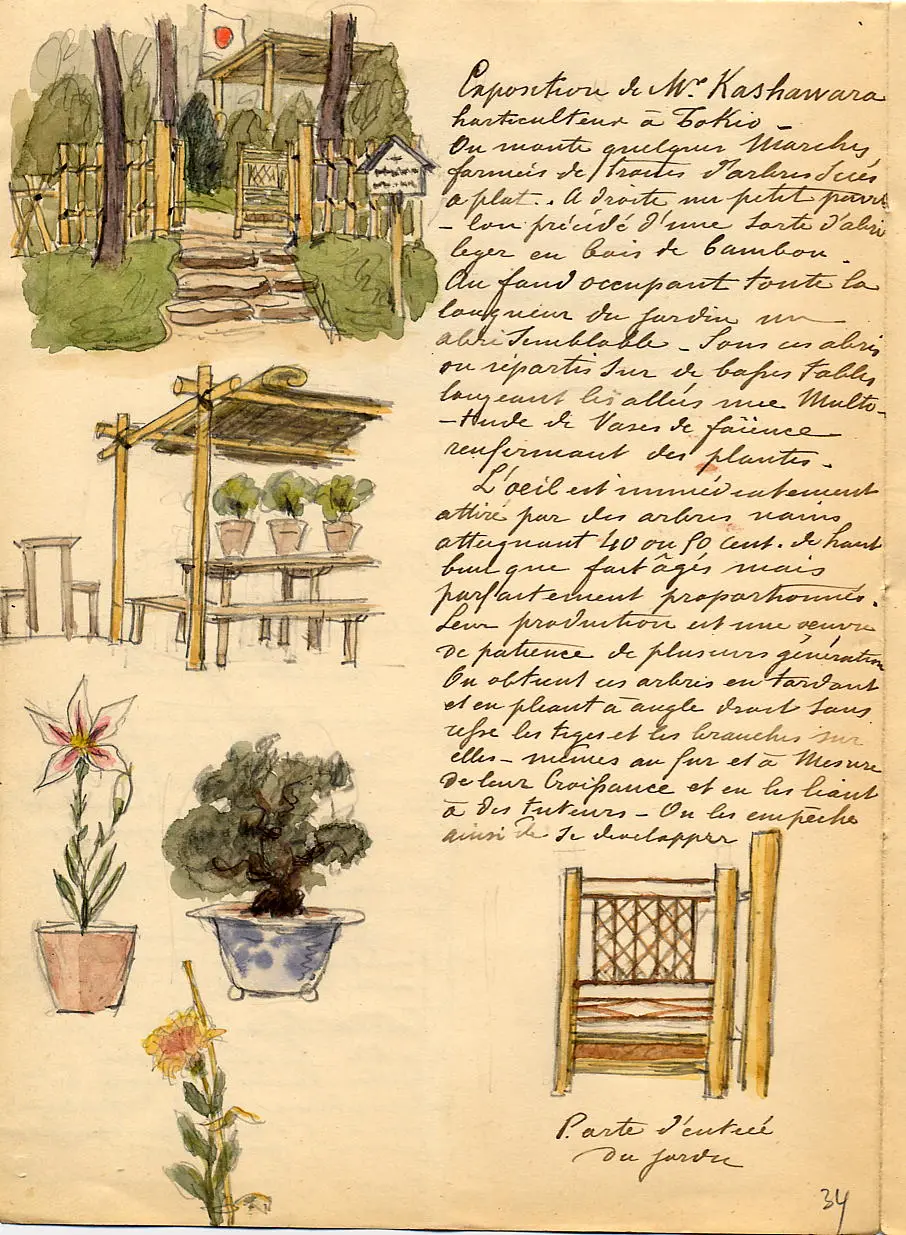 Exposition de Mr Kashawara
horticulteur à Tokio -
On monte quelques Marches
formeis de traites d'arbres
à plat . . A droite un petit pavil
- lon précédé d'une Sorte d'abri
leger en bois de bambou .
Au fond occupant toute la
longueur du jardin un
abri Semblable - Sous ces abris
ou répartis Sur de basses tables
longeant les allées une Multi-
- tude de Vases de faïence
renfermant des plantes .
L'oeil est immédiatement
attiré par des arbres nains
atteignant 40 ou 50 cent. de haut
bien que fort âgés mais
parfaitement proportionnés.
Leur production est une oeuvre
de patience de plusieurs génération
On obtient ces arbres en tordant
et en pliant à angle droit Sans
cesse les tiges et les branches sur
elles - mêmes au fur et à Mesure
de leur Croissance et en les liant
à des tuteurs - On les empêche
ainsi de Se developper
Porte d'entrée
du jardin
34